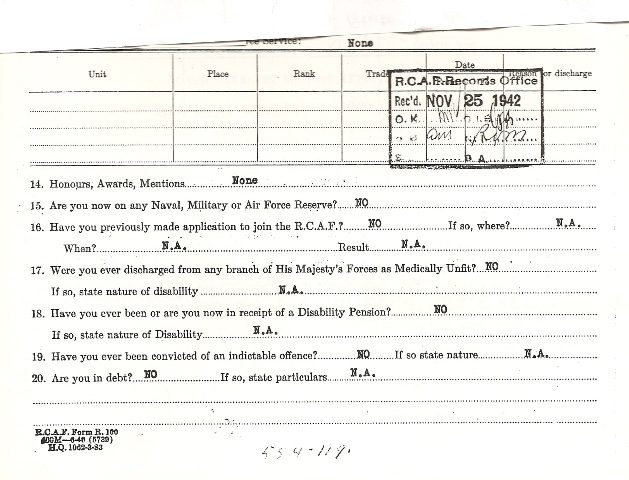 Service: None
Unit Place Rank Trade Date Reason for discharge
R.C.A.F. Records Office
Rec'd. NOV 25 1942
O.K.
14. Honours, Awards, Mentions None
15. Are you now on any Naval, Military or Air Force Reserve? NO
16. Have you previously made application to join the R.C.A.F.? NO If so, where? N.A.
When? N.A. Result N.A.
17. Were you ever discharged from any branch of His Majesty's Forces as Medically Unfit? NO
If so, state nature of disability N.A.
18. Have you ever been or are you now in receipt of a Disability Pension? NO
If so, state nature of Disability N.A.
19. Have you ever been convicted of an indictable offence? NO If so state nature N.A.
20. Are you in debt? NO If so, state particulars N.A.
R.C.A.F. Form R. 100
(5729)
H.Q. 1062-3-83
534-119.